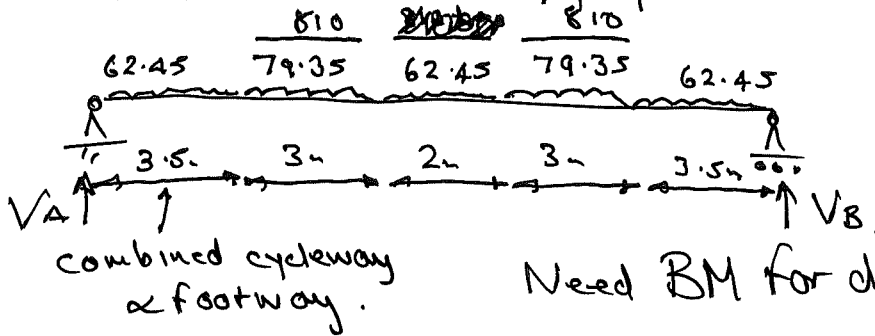 810 810
62.45 79.35 62.45 79.35 62.45
3.5m 3m 2m 3m 3.5m
VA VB
combined cycleway
& footway.
Need BM for d